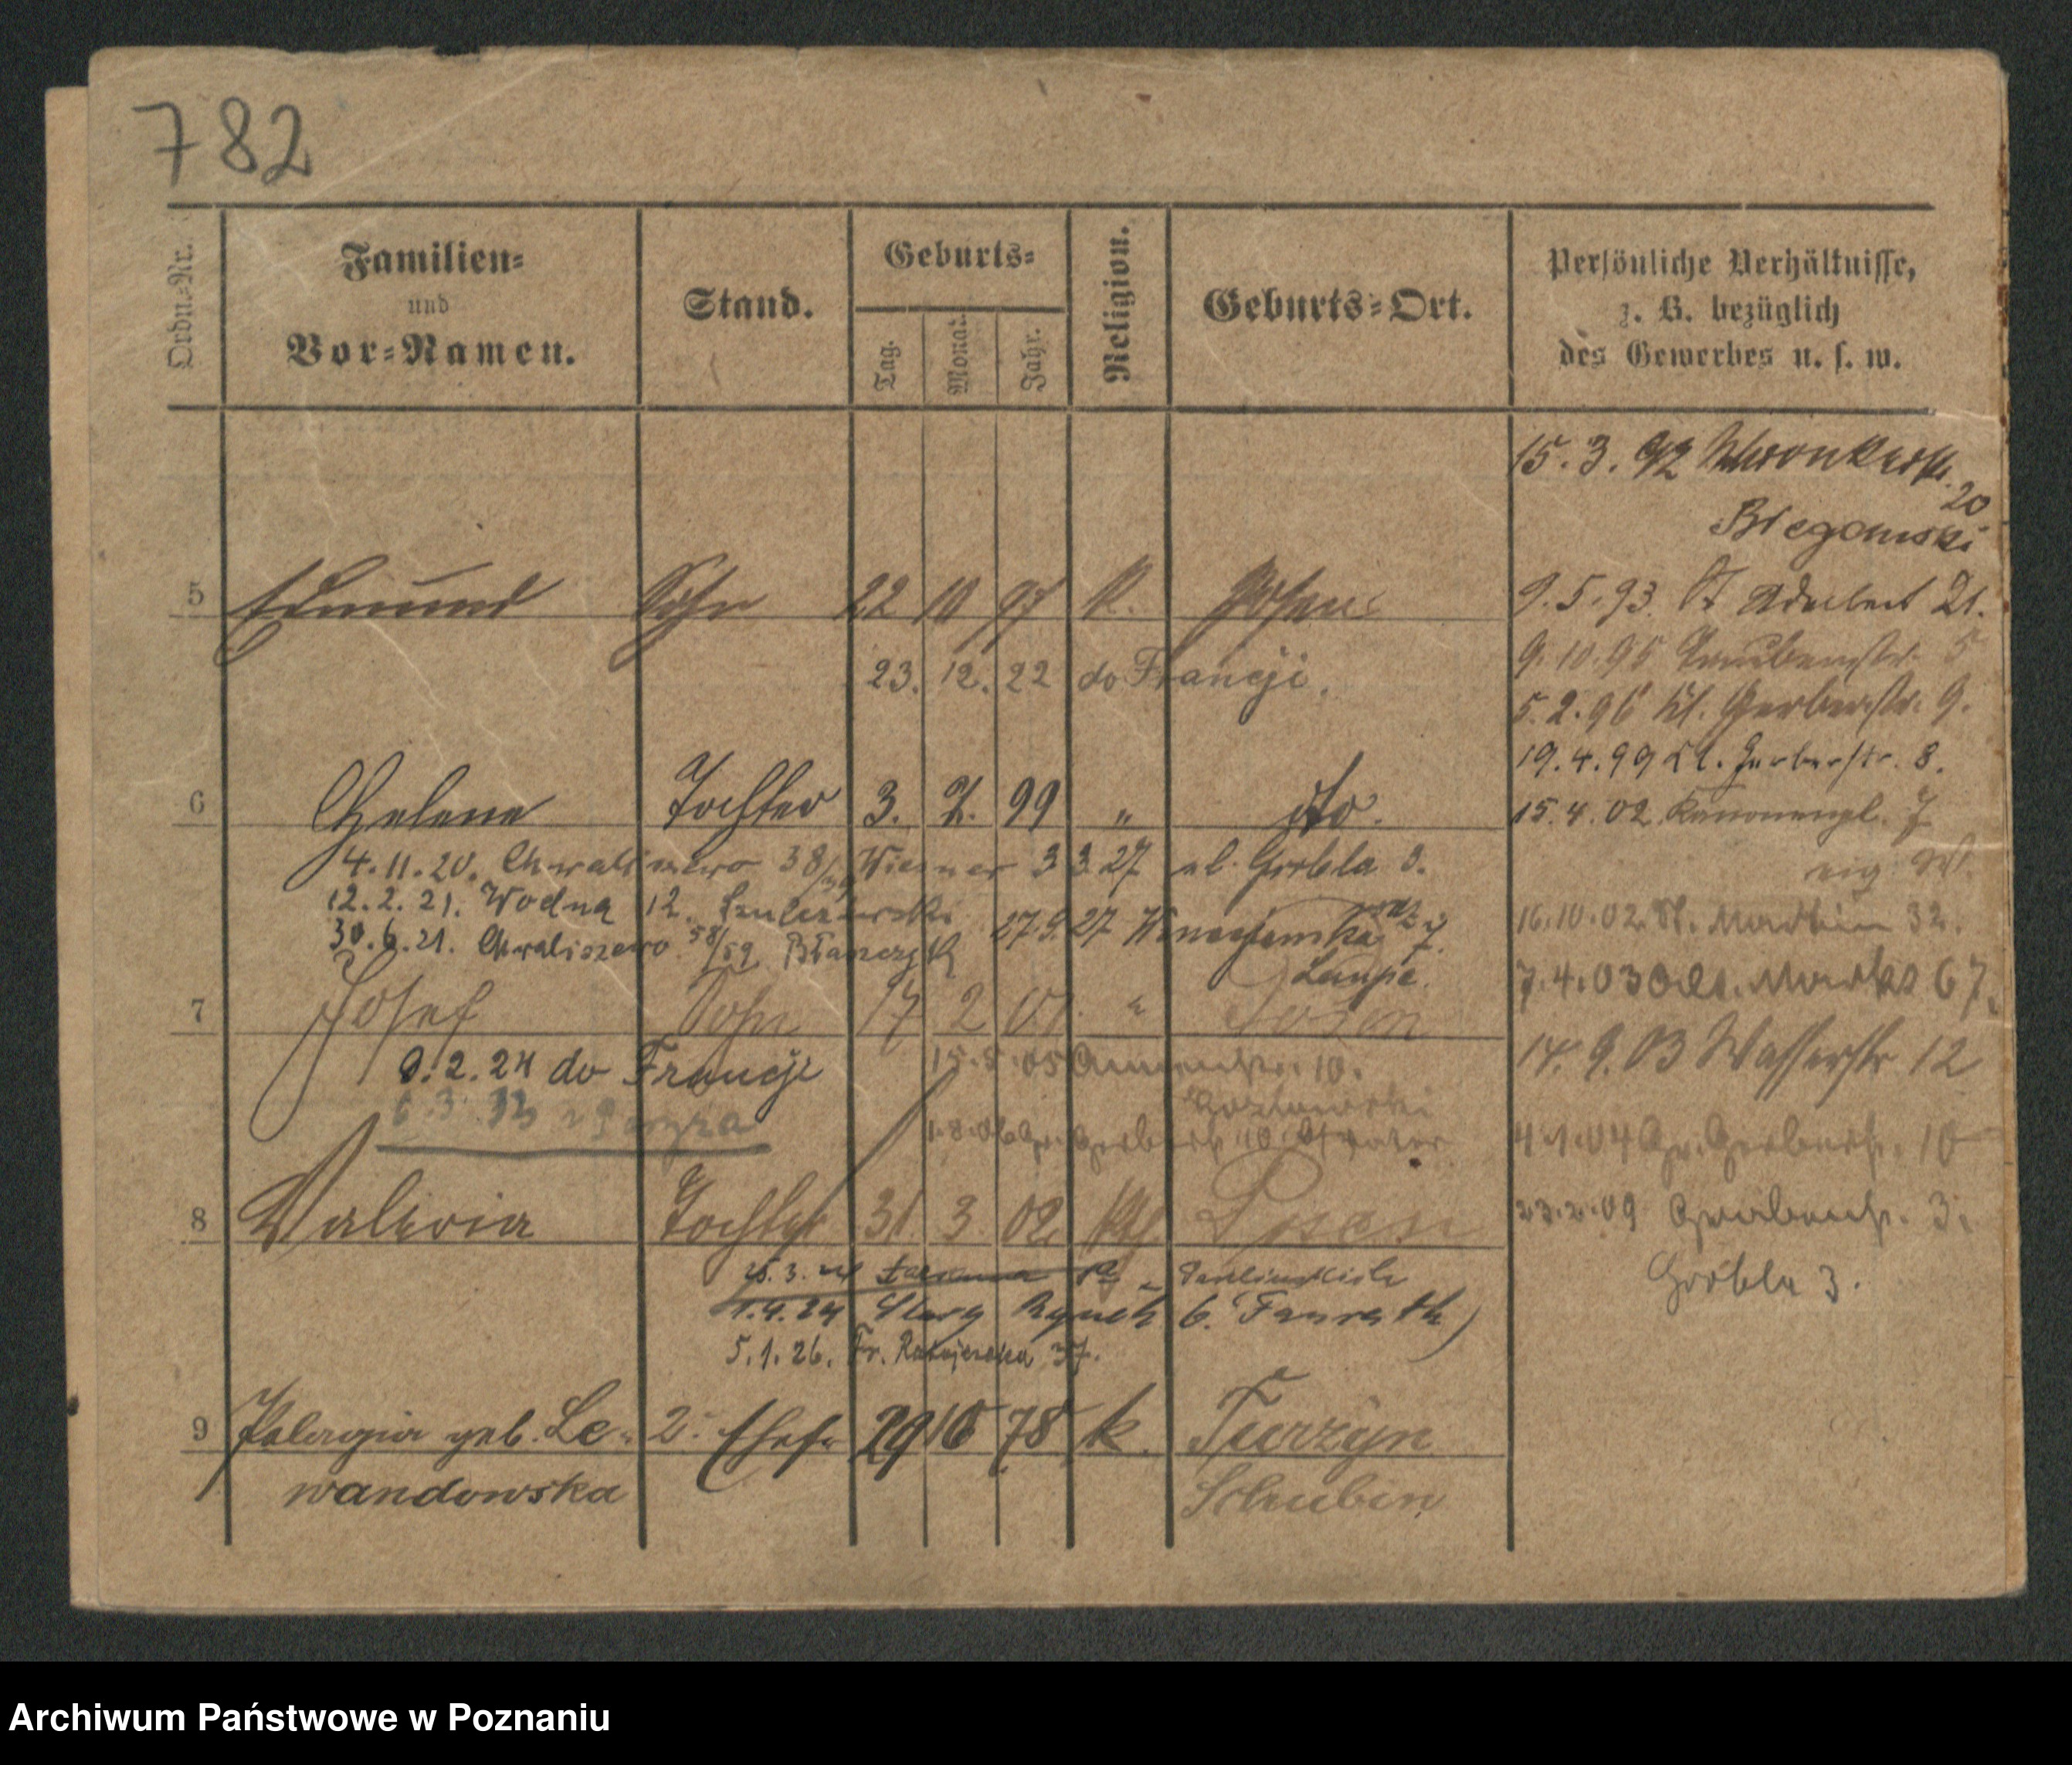 782
Ordn.-Nr.
Familien-
und
Vor-Namen.
Stand.
Geburts-
Tag.
Monat.
Jahr.
Religion.
Geburts-Ort.
Persönliche Verhältnisse,
z. B. bezüglich
des Gewerbes u. s. w.
15. 3. 92 Wronkerstr. 20
Biegański
5 Edmund Sohn 22 10 97 k. Posen
9. 5. 93. St Adalbert 21.
23. 12. 22 do Francji.
9. 10. 95 Taubenstr. 5
5. 2. 96 Kl. Gerberstr. 9.
19. 4. 99 Kl. Gerberstr. 8.
6 Helene Tochter 3. 2. 99 " dto.
15. 4. 02 Kanonenpl. 7
4. 11. 20. Chwaliszewo 38/ Wiesner 3 3 27 Grobla 3.
eig. W.
12. 2. 21. Wodna 12.
16. 10. 02 St. Martin 32.
30. 6. 21. Chwaliszewo 58/59 Błaszczyk
27. 9. 27 7.
Laupe.
7. 4. 03 Alt. Markt 67.
7 Josef Sohn 17 2 01 " Posen
14. 9. 03 Wasserstr 12
9. 2. 24 do Francji
15. 5. 05 10.
6. 3. 32 z Paryża
Kozłowski
1. 8. 06 Gr. Gerberstr 40
4. 1. 04 Gr. Gerberstr. 10
8 Valeria Tochter 31 3. 02 kth Posen
23. 2. 09 Grabenstr. 3.
Grobla 3.
25. 3. 24
1. 4. 24 Stary Rynek 6.
5. 1. 26. Fr. Ratajczaka 37.
9 Pelagia geb. Le- 2. Ehefr 29 10 78 k. Turzyn
wandowska Schubin
Archiwum Państwowe w Poznaniu